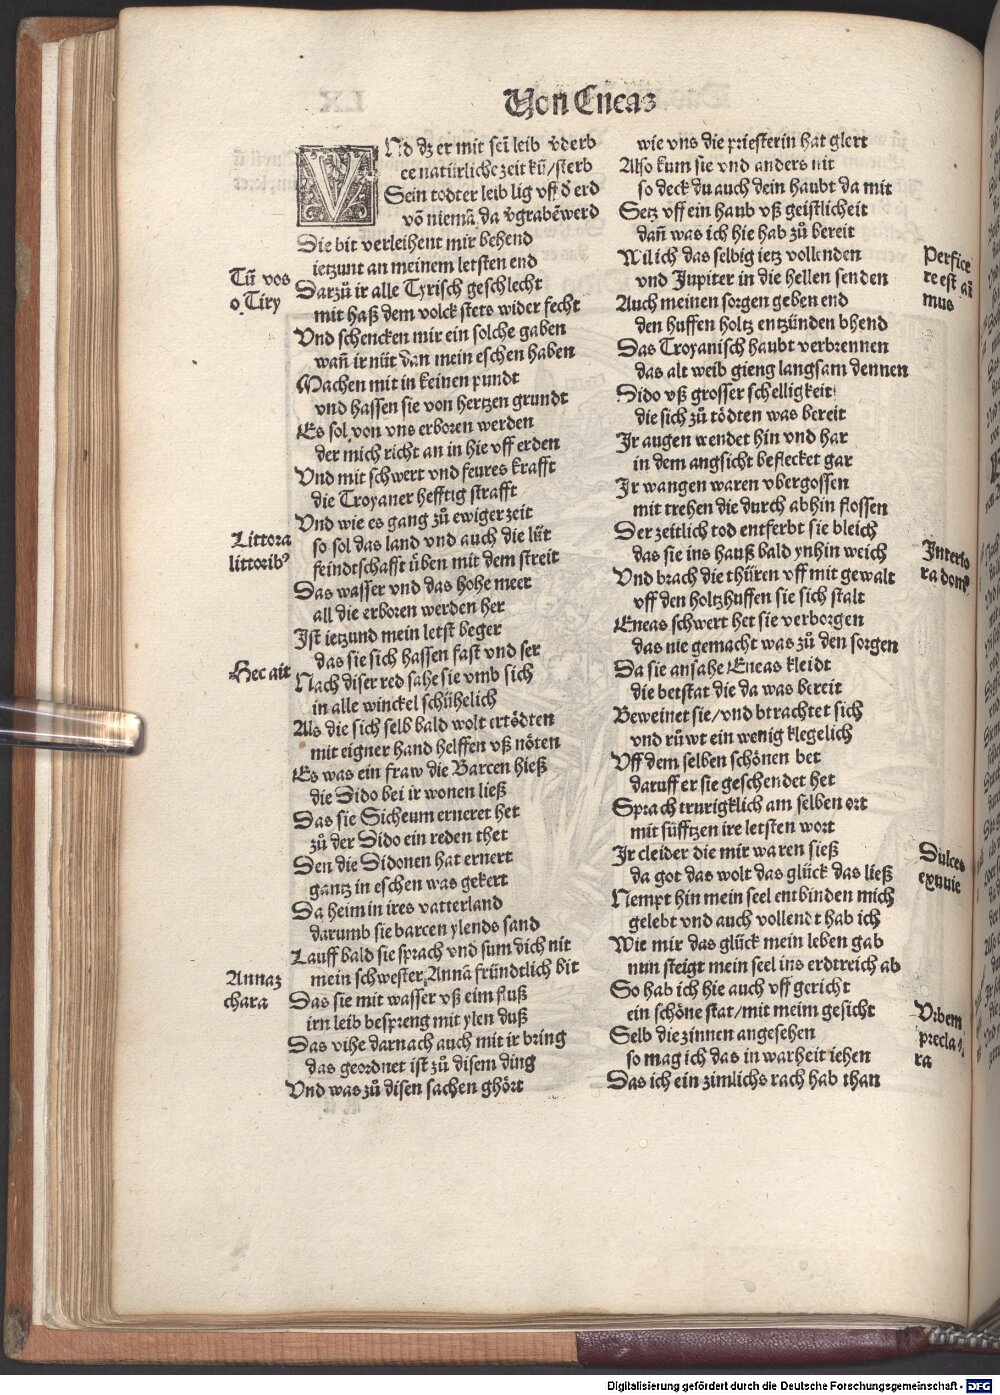 Von Eneas
VNd dz er mit sei leib v̉derb
ee natürliche zeit kü/sterb
Sein todter leib lig vff d̉ erd
võ niemã da v̉grabẽ werd
Die bit verleihent mir behend
ietzunt an meinem letsten end
Tũ vos
o Tiry
Darzů ir alle Tyrisch geschlecht
mit haß dem volck stets wider fecht
Vnd schencken mir ein solche gaben
wañ ir nüt dan mein eschen haben
Machen mit in keinen pundt
vnd hassen sie von hertzen grundt
Es sol von vns erboren werden
der mich richt an in hie vff erden
Vnd mit schwert vnd feures krafft
die Troyaner hefftig strafft
Vnd wie es gang zů ewiger zeit
Littora
littorib⁹
so sol das land vnd auch die lüt
feindtschafft üben mit dem streit
Das wasser vnd das hohe meer
all die erboren werden her
Ist ietzund mein letst beger
das sie sich hassen fast vnd ser
Hec ait
Nach diser red sahe sie vmb sich
in alle winckel schühelich
Als die sich selb bald wolt ertödten
mit eigner hand helffen vß nöten
Es was ein fraw die Barcen hieß
die Dido bei ir wonen ließ
Das sie Sicheum erneret het
zů der Dido ein reden thet
Den die Sidonen hat ernert
gantz in eschen was gekert
Da heim in ires vatterland
darumb sie barcen ylends sand
Lauff bald sie sprach vnd sum dich nit
Annaz
chara
mein schwester Annã fründtlich bit
Das sie mit wasser vß eim fluß
irn leib bespreng mit ylen duß
Das vihe darnach auch mit ir bring
das geordnet ist zů disem ding
Vnd was zů disen sachen ghört
wie vns die priesterin hat glert
Also kum sie vnd anders nit
so deck du auch dein haubt da mit
Setz vff ein haub vß geistlicheit
dañ was ich hie hab zů bereit
Wil ich das selbig ietz vollenden
vnd Jupiter in die hellen senden
Perfice
re est ai
mus
Auch meinen sorgen geben end
den huffen holtz entzünden bhend
Das Troyanisch haubt verbrennen
das alt weib gieng langsam dennen
Dido vß grosser schelligkeit
die sich zů tödten was bereit
Ir augen wendet hin vnd har
in dem angsicht beflecket gar
Ir wangen waren vbergossen
mit trehen die durch abhin flossen
Der zeitlich tod entferbt sie bleich
das sie ins hauß bald ynhin weich
Interio
ra dom⁹
Vnd brach die thüren vff mit gewalt
vff den holtzhuffen sie sich stalt
Eneas schwert het sie verborgen
das nie gemacht was zů den sorgen
Da sie ansahe Eneas kleidt
die betstat die da was bereit
Beweinet sie/vnd btrachtet sich
vnd rüwt ein wenig klegelich
Vff dem selben schönen bet
daruff er sie geschendet het
Sprach trurigklich am selben ort
mit süfftzen ire letsten wort
Ir cleider die mir waren sieß
da got das wolt das glück das ließ
Dulces
exuuie
Nempt hin mein seel entbinden mich
gelebt vnd auch vollendt hab ich
Wie mir das glück mein leben gab
nun steigt mein seel ins erdtreich ab
So hab ich hie auch vff gericht
ein schöne stat/mit meim gesicht
Vrbem
precla
ra
Selb die zinnen angesehen
so mag ich das in warheit iehen
Das ich ein zimlichs rach hab than
Digitalisierung gefördert durch die Deutsche Forschungsgemeinschaft - DFG